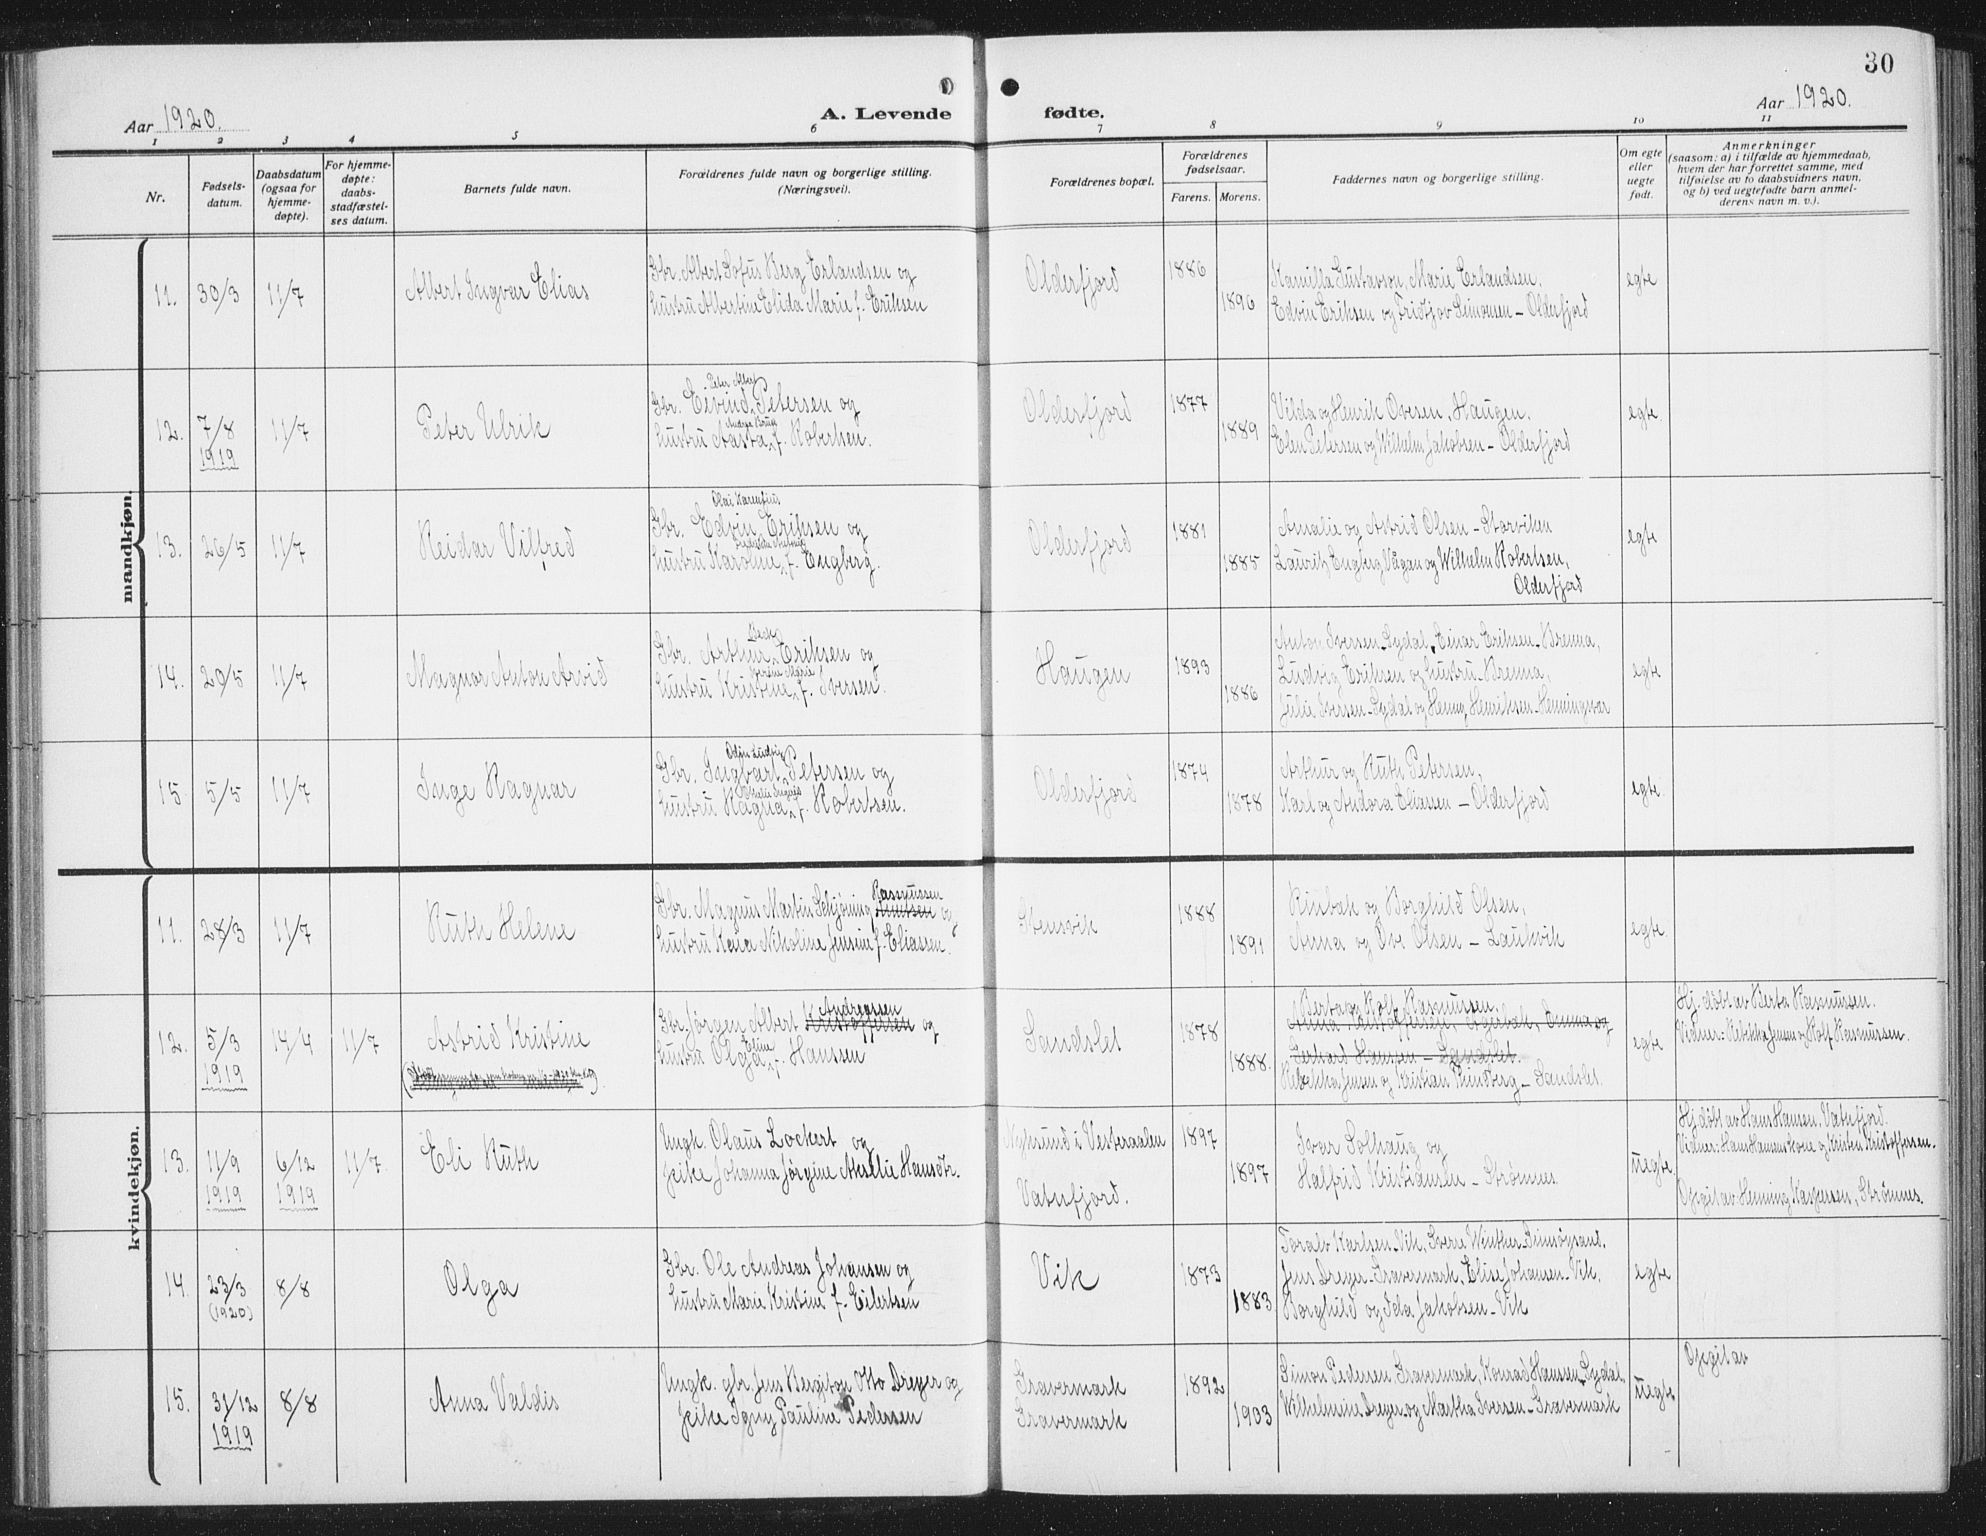 30
Aar 1920.
A. Levende fødte.
Aar 1920.
1 2 3 4 5 6 7 8 9 10 11
Nr.
Fødsels-
datum.
Daabsdatum
(ogsaa for
hjemme-
døpte).
For hjemme-
døpte:
daabs-
stadfæstel-
ses datum.
Barnets fulde navn.
Forældrenes fulde navn og borgerlige stilling.
(Næringsvei).
Forældrenes bopæl.
Forældrenes
fødselsaar.
Farens. Morens.
Faddernes navn og borgerlige stilling.
Om egte
eller
uegte
født.
Anmerkninger
(saasom: a) i tilfælde av hjemmedaab,
hvem der har forrettet samme, med
tilføielse av to daabsvidners navn,
og b) ved uegtefødte barn anmel-
derens navn m. v.).
mandkjøn.
11. 30/3 11/7
Albert Ingvar Elias
Gbr. Albert Sofus Berg Erlandsen og
hustru Albertine Elida Marie f. Eriksen
Olderfjord
1886
1896
Kamilla Gustavson, Marie Erlandsen,
Edvin Eriksen og Fridtjov Simonsen – Olderfjord
egte
12. 7/8 11/7
1919
Peter Ulrik
Peter Albert
Gbr. Eivind Petersen og
hustru Aasta f. Robertsen.
Olderfjord
1877
1889
Vilda og Henrik Ovesen, Haugen,
Elen Petersen og Wilhelm Jakobsen – Olderfjord
egte
13. 26/5 11/7
Reidar Vilfred
Olai Karenfius
Gbr. Edvin Eriksen og
hustru Karoline f. Engberg.
Olderfjord
1881
1885
Amalie og Astrid Olsen – Storviken
Lauritz Engberg, Vågan og Wilhelm Robertsen,
Olderfjord
egte
14. 29/5 11/7
Magnar Anton Arvid
Beck
Gbr. Arthur Eriksen og
Marie
hustru Kristine f. Iversen.
Haugen
1893
1886
Anton Iversen – Sydal, Einar Eriksen – Brenna,
Ludvig Eriksen og hustru – Brenna,
Julie Iversen – Sydal og Henny Henriksen – Henningsvær
egte
15. 5/5 11/7
Inge Ragnar
Odin Ludvig
Gbr. Ingvart Petersen og
hustru Ragna f. Robertsen.
Olderfjord
1874
1878
Arthur og Ruth Petersen,
Karl og Andora Eliassen – Olderfjord
egte
kvindekjøn.
11. 28/3 11/7
Ruth Helene
Rasmussen
Gbr. Magnus Martin Schjøning Knutsen og
hustru Kaia Nikoline Jensine f. Eliassen.
Stensvik
1888
1891
Rinbak og Borghild Olsen,
Anna og Ove Olsen – Laukvik
egte
12. 5/3 14/4 11/7
1919
Astrid Kristine
Andreassen
Gbr. Jørgen Albert Kristoffersen og
Eline
hustru Olga f. Hanssen
Sandslet
1878
1888.
Berta og Rolf Rasmussen.
Anna Kristoffersen, Emma og
Gerhard Hansen – Sandslet.
Rebekka Jensen og Kristian Rindberg – Sandslet.
egte
Hj. døbt av Berta Rasmussen.
Vidner: Rebekka Jensen og Rolf Rasmussen.
13. 11/9 6/12 11/7
1919 1919
Eli Ruth
Ungk. Olaus Lockert og
Pike Johanna Jørgine Amalie Hansdtr.
Nyksund i Vesteraalen
Vaterfjord.
1897
1897
Ivar Solhaug og
Halfrid Kristiansen – Strømnes
uegte
Hj. døbt av Hans Hansen Vaterfjord.
Vidner: Hans Hansens kone og Kristen Kristoffersen.
Opgit av Henning Kaspersen, Strømnes.
14. 23/3 8/8
(1920)
Olga
Gbr. Ole Andreas Johansen og
hustru Marie Kristine f. Eilertsen
Vik
1873
1883.
Toralv Karlsen – Vik, Sverre Winther – Gimsøysand,
Jens Dreyer – Gravermark, Elise Johansen – Vik,
Borghild og Ida Jakobsen – Vik
egte
15. 31/12 8/8
1919
Anna Valdis
Ungk. gbr. Jens Bergiton Otto Dreyer og
Pike Signy Pauline Pedersen
Gravermark
Gravermark
1892
1903
Simon Pedersen Gravermark, Konrad Hansen – Sydal,
Wilhelmine Dreyer og Martha Iversen – Gravermark
uegte
Opgit av